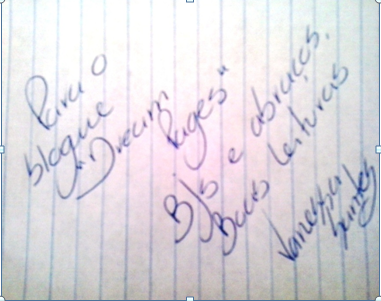 Para o
blogue
"Dream
Pages"
Bjs e abraços.
Boas leituras
Vanessa
Santos